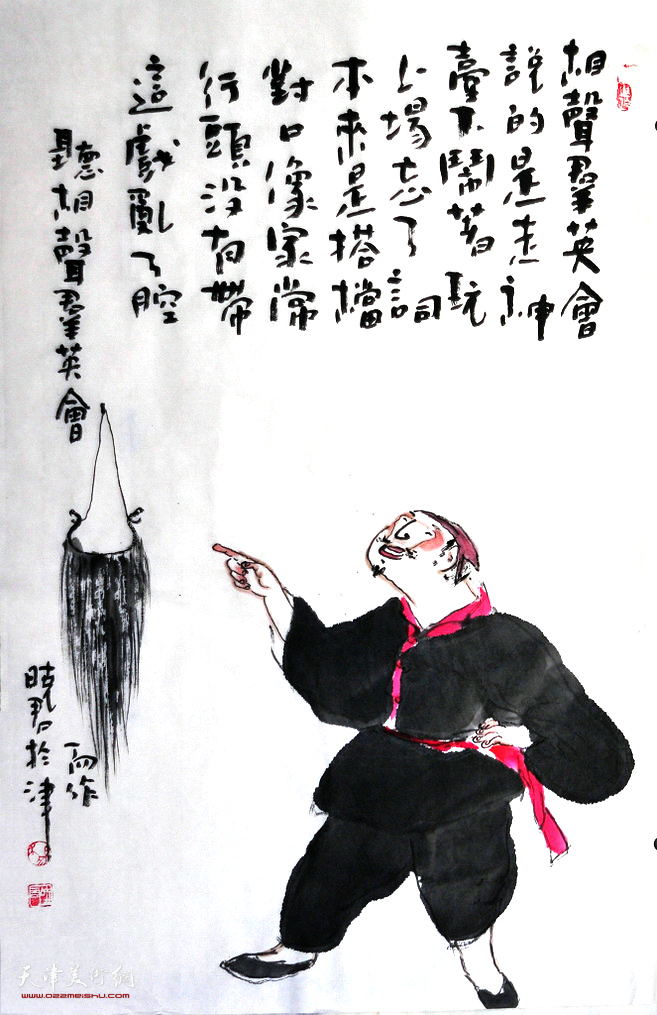 相聲羣英會
說的是走神
臺下鬧著玩
上場忘了詞
本來是搭檔
對口像家常
行頭沒有帶
這戲亂了腔
聽相聲羣英會
而作
於津
天津美术网
www.022meishu.com